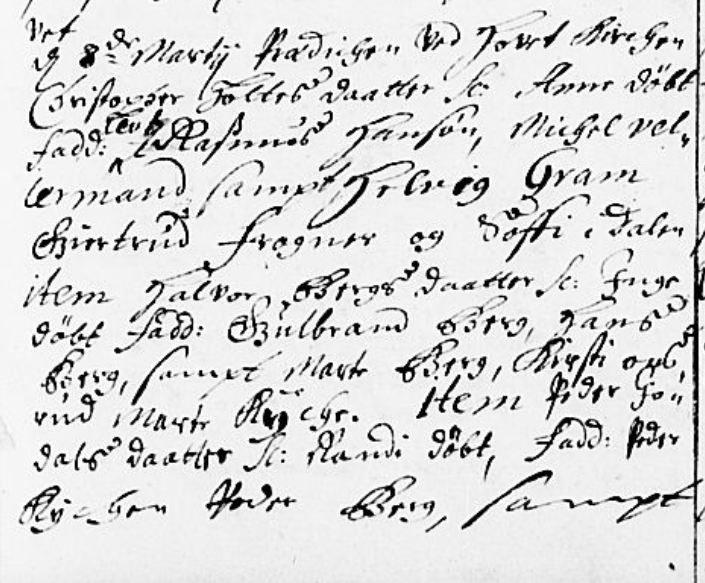 vet
d 8de Martij Prædichen Ved Hovet Kirchen
Christopher Holtes daatter N: Anne döbt
fadd: Rasmus Hansön, Michel Vel-
lermand sampt Helvig Gram
Giertrud Frogner og Söffi i Dalen
item Halvor Bergs daatter N: Inge
döbt fadd: Gulbrand Berg, Hans
Berg, sampt Marte Berg, Kirsti ops,
rud Marte Rychen. Item Peder
dals daatter N: Randi döbt, Fadd: Peder
Rychen Peder Berg, sampt